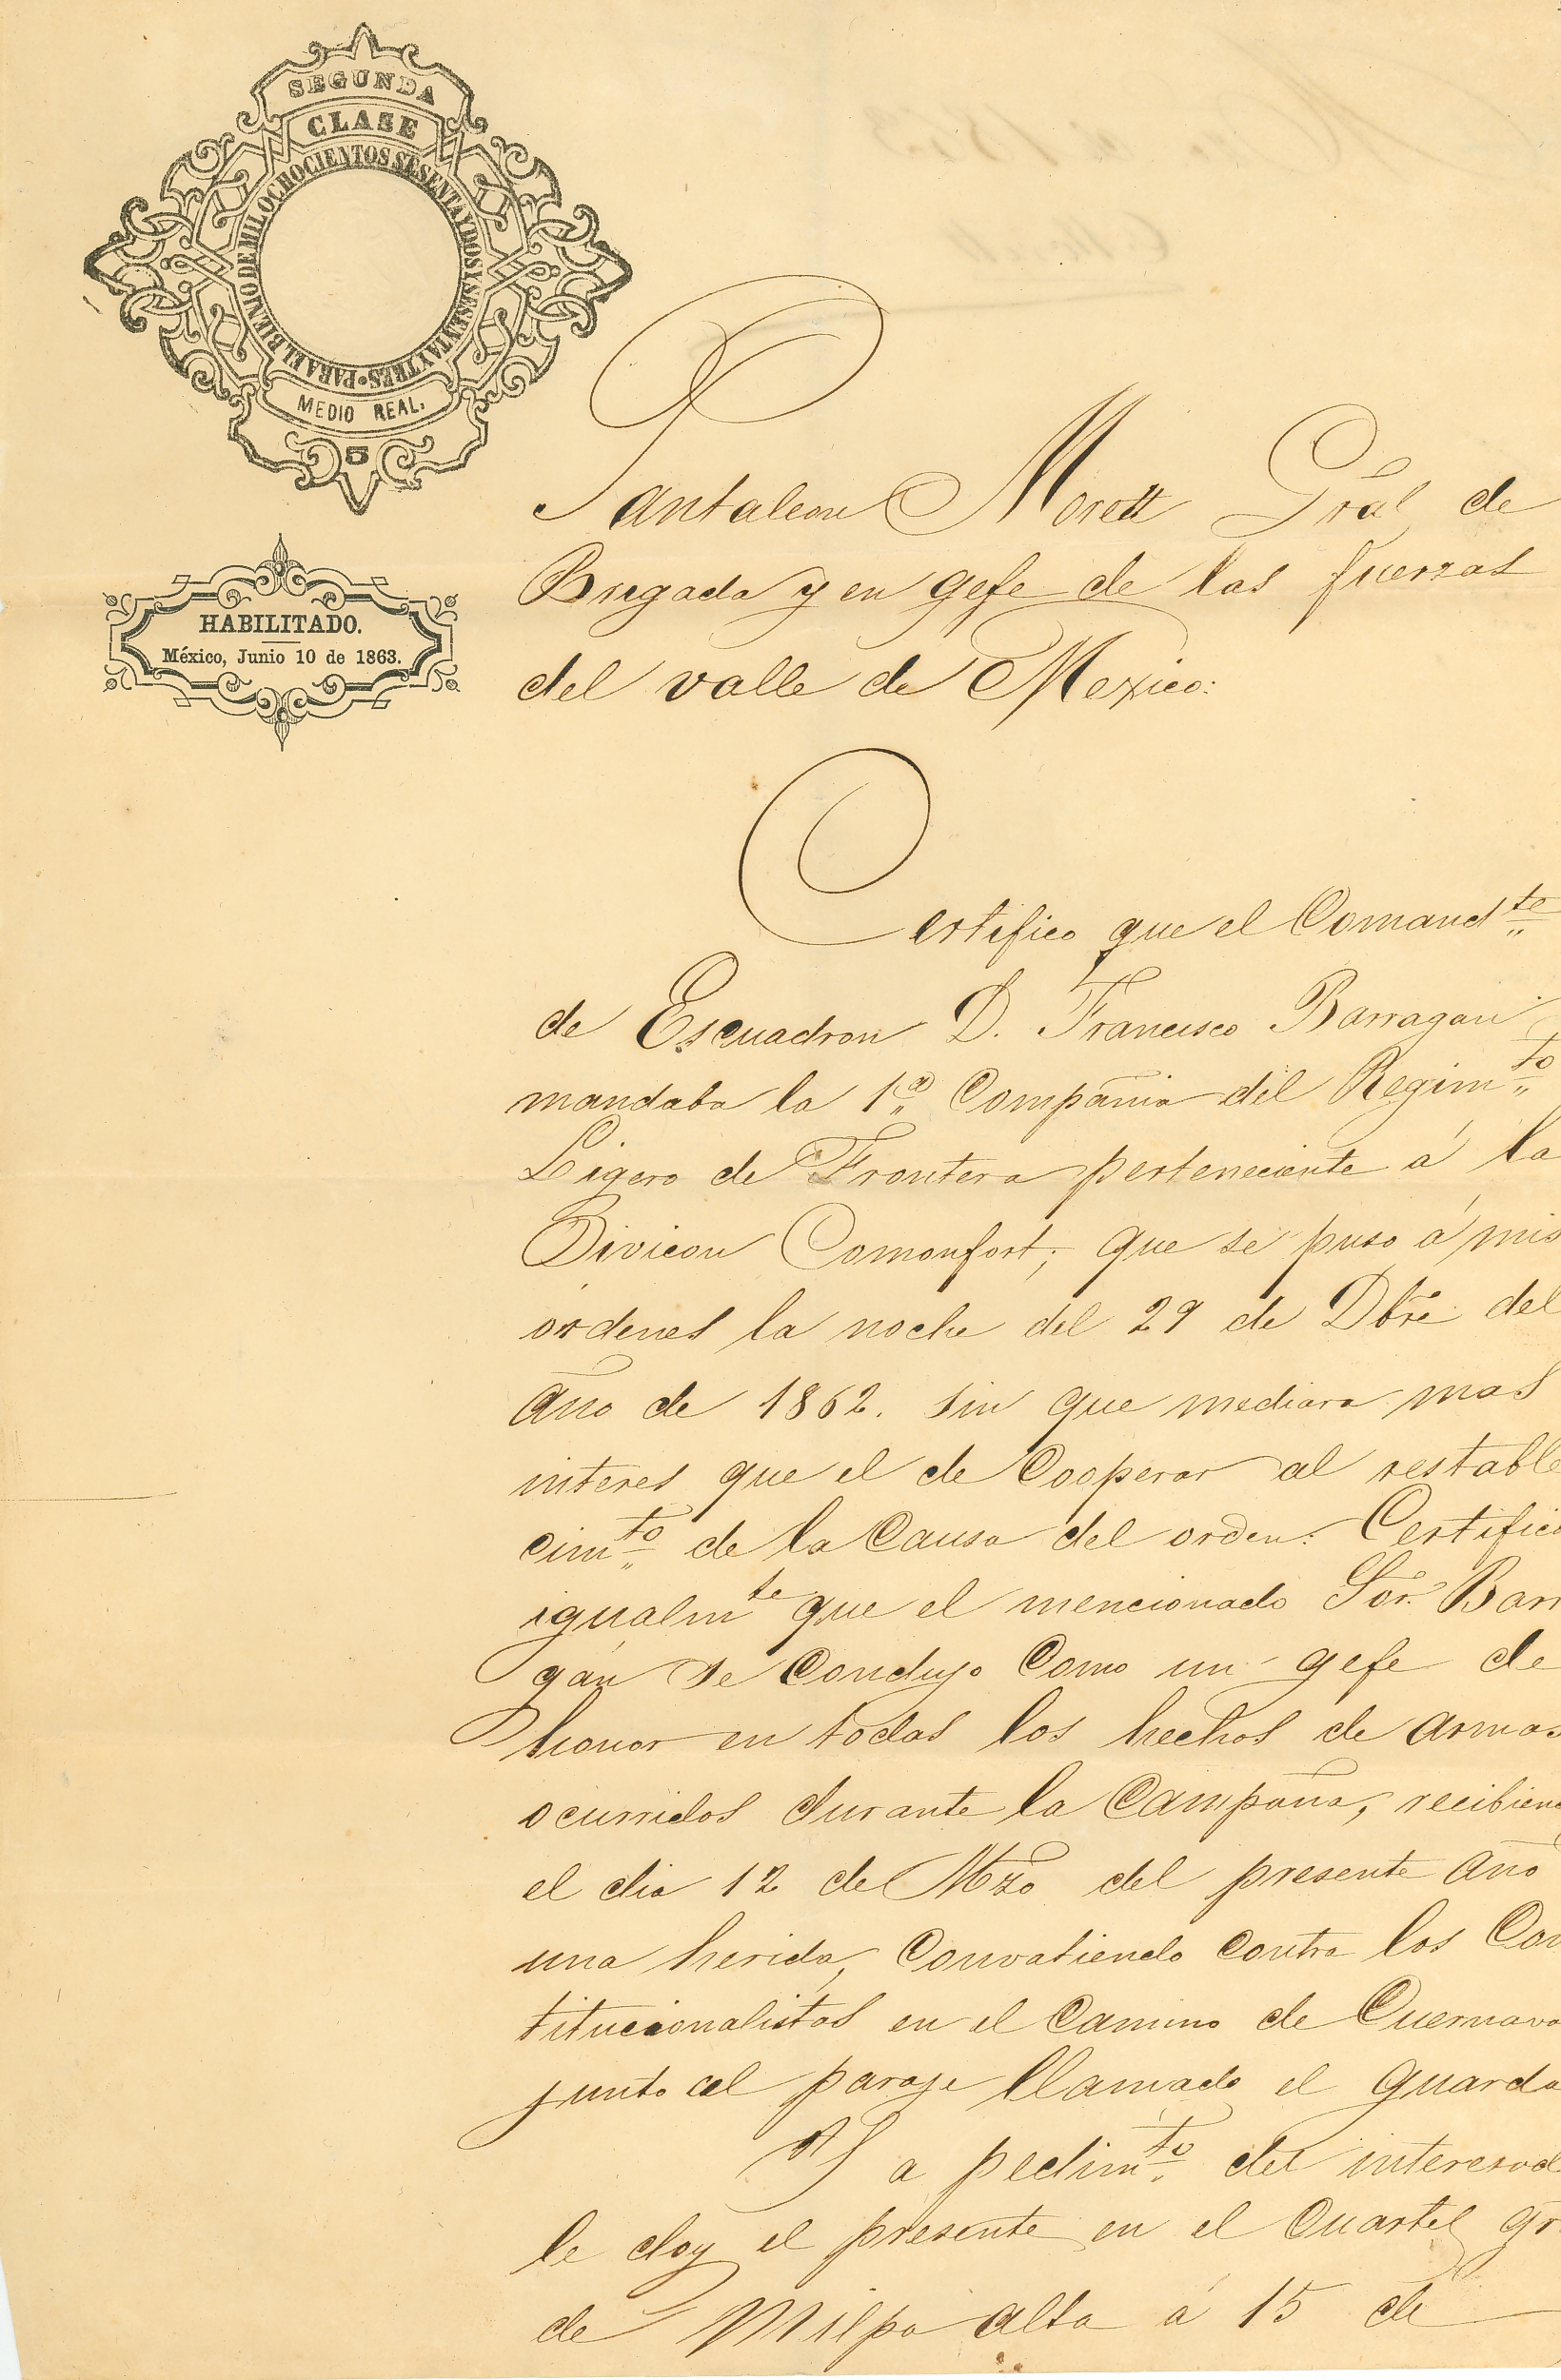 SEGUNDA
CLASE
PARA EL BIENIO DE MIL OCHOCIENTOS SESENTA Y DOS Y SESENTA Y TRES.
MEDIO REAL.
5
HABILITADO.
México, Junio 10 de 1863.
Pantaleon Morett Gral de
Brigada y en gefe de las fuerzas
del valle de Mexico:
Certifico que el Comandte
de Escuadron D. Francisco Barragan
mandaba la 1a Compañia del Regimto
Ligero de Frontera perteneciente á la
Divicon Comonfort; que se puso á mis
ordenes la noche del 29 de Dbre del
año de 1862. sin que mediara mas
interes que el de Cooperar al restable
cimto de la Causa del orden. Certifico
igualmte que el mencionado Sor. Barr
gán se Condujo Como un gefe de
honor en todos los hechos de armas
ocurridos durante la Campaña, recibien
el dia 12 de Mzo del presente año
una herida, Convatiendo contra los Con
titucionalistas en el Camino de Cuernava
junto al paraje llamado el guarda
Y a pedimto del interesad
le doy el presente en el Cuartel gr
de Milpa alta á 15 de